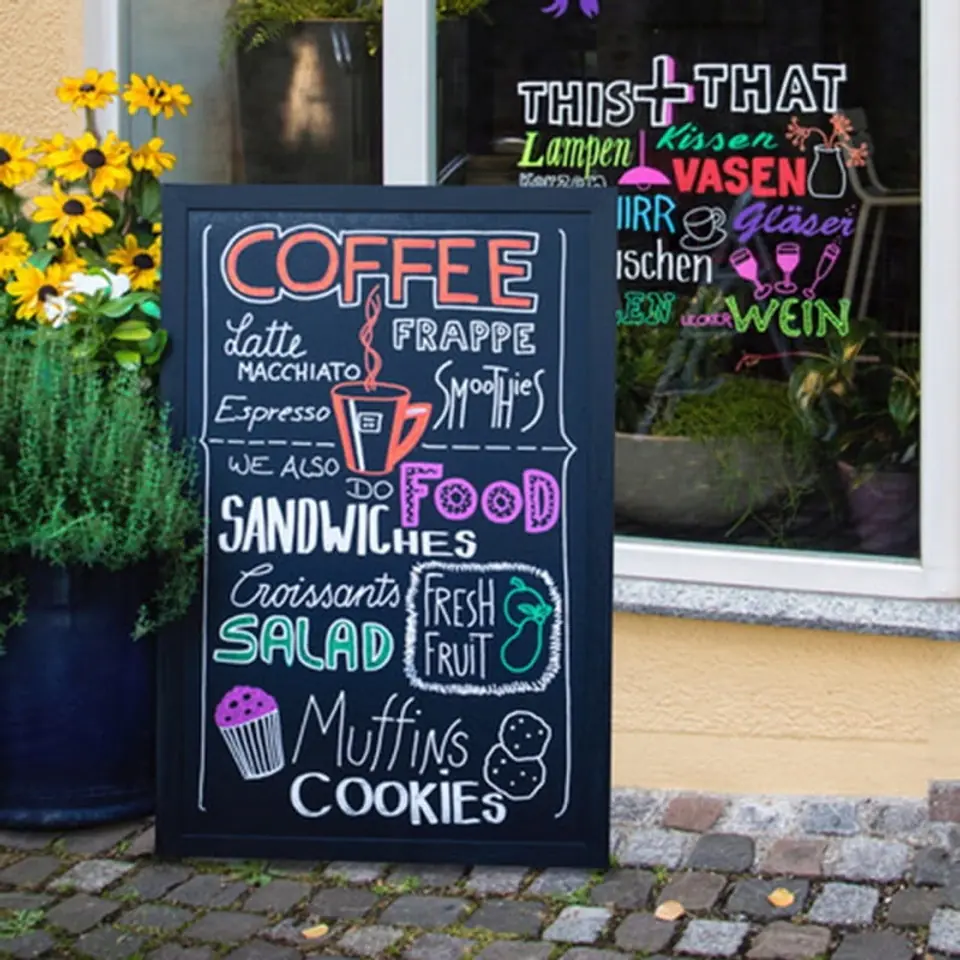 COFFEE
Latte
MACCHIATO
FRAPPE
Espresso
SMOOTHIES
WE ALSO
DO FOOD
SANDWICHES
Croissants
FRESH
FRUIT
SALAD
Muffins
COOKIES
THIS + THAT
Lampen Kissen
Kerzen VASEN
HIRR Gläser
schen
EN LECKER WEIN